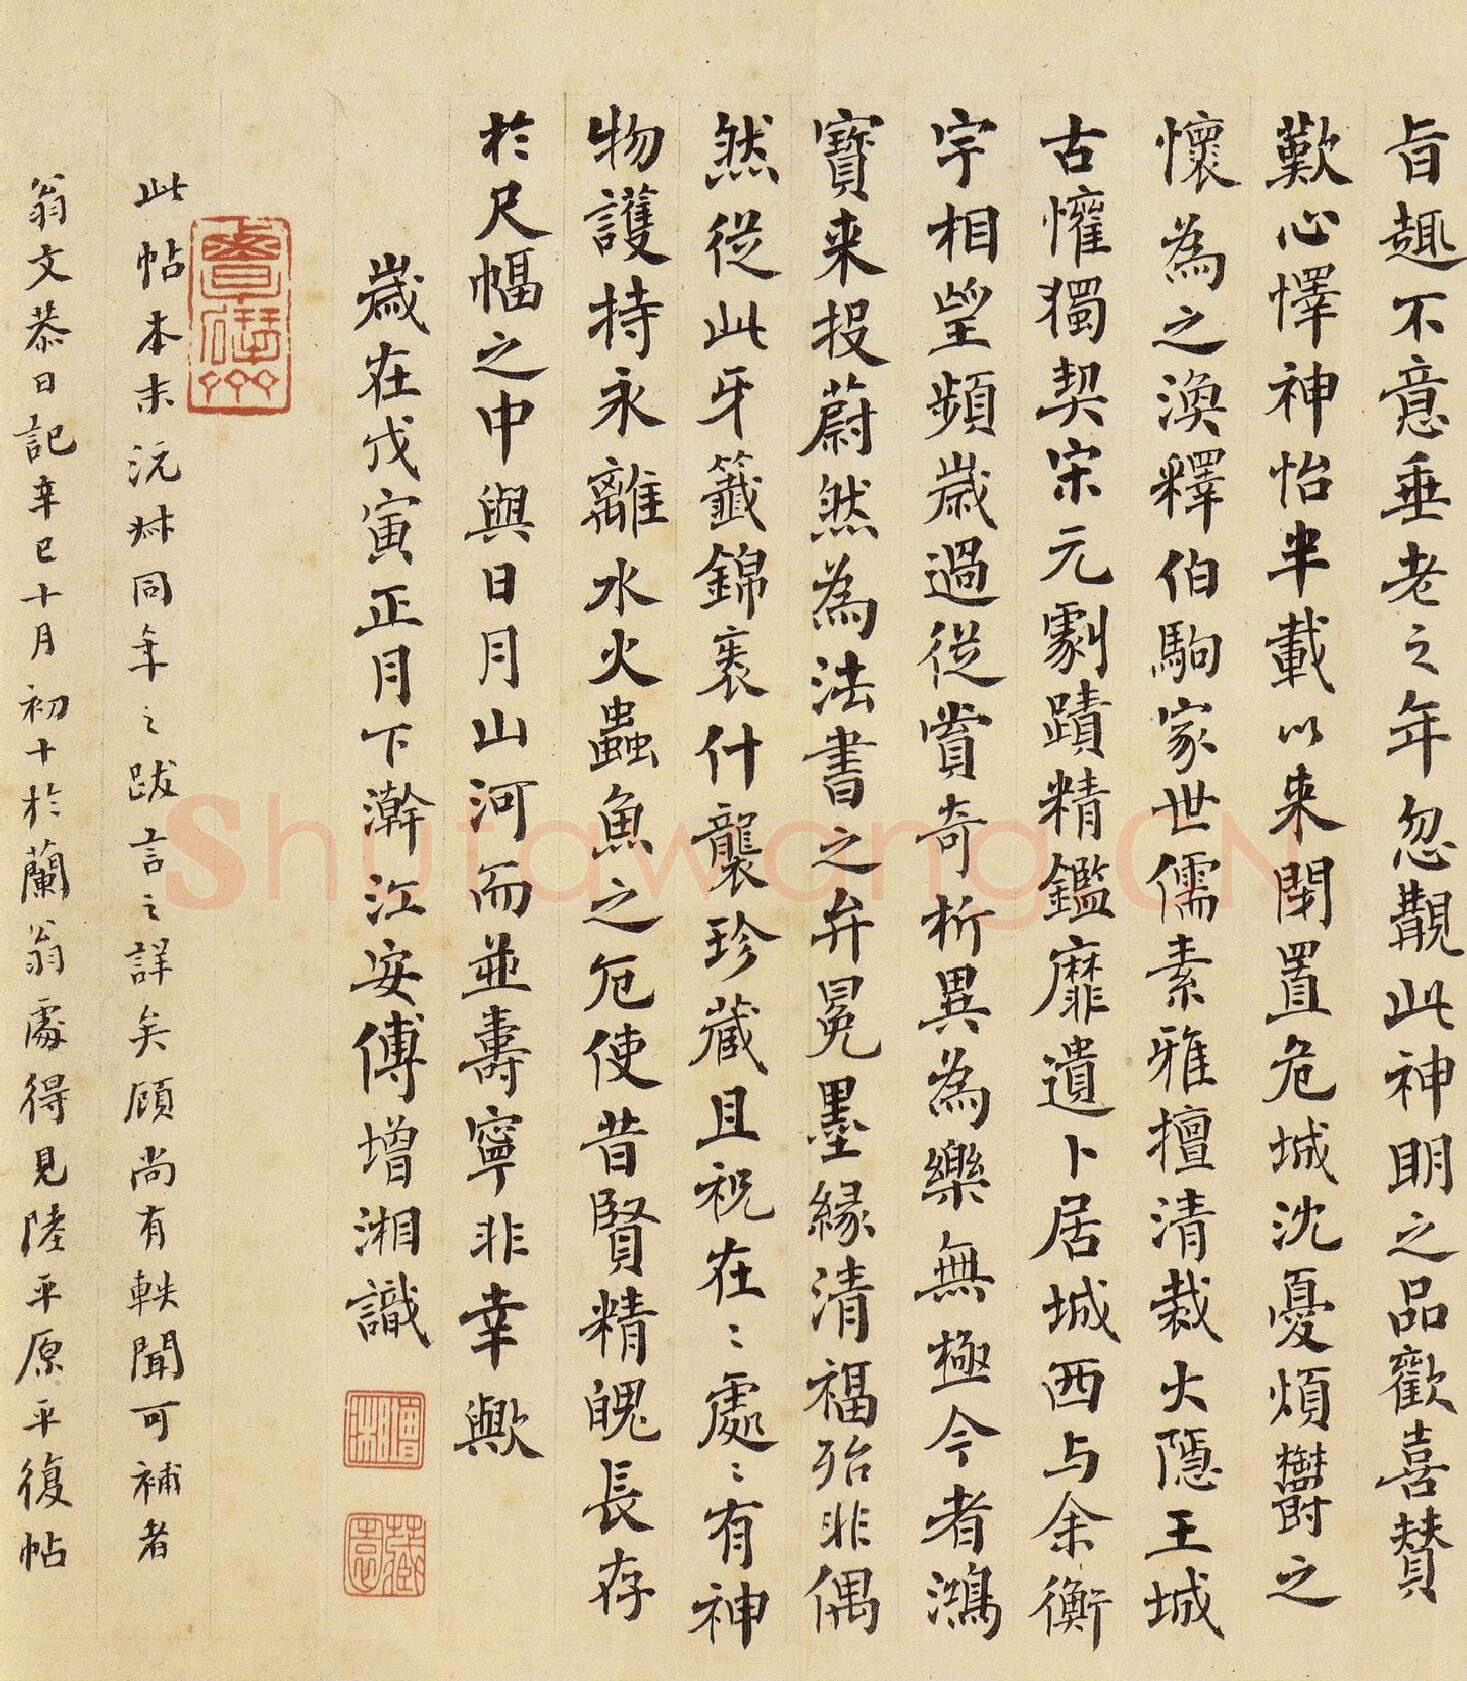 旨趣不意垂老之年忽覩此神明之品歡喜贊
歎心懌神怡半載以来閉置危城沈憂煩欝之
懷為之渙釋伯駒家世儒素雅擅清裁大隱王城
古懽獨契宋元劇蹟精鑑靡遺卜居城西与余衡
宇相望頻歲過從賞奇析異為樂無極今者鴻
寶来投蔚然為法書之弁冕墨緣清福殆非偶
然從此牙籤錦裹什襲珍藏且祝在ミ處ミ有神
物護持永離水火蟲魚之厄使昔賢精魄長存
於尺幅之中與日月山河而並壽寧非幸歟
歲在戊寅正月下澣江安傅增湘識
增湘
藏園
此帖本末沅叔同年之跋言之詳矣顧尚有軼聞可補者
翁文恭日記辛巳十月初十於蘭翁處得見陸平原平復帖
Shufawang.CN